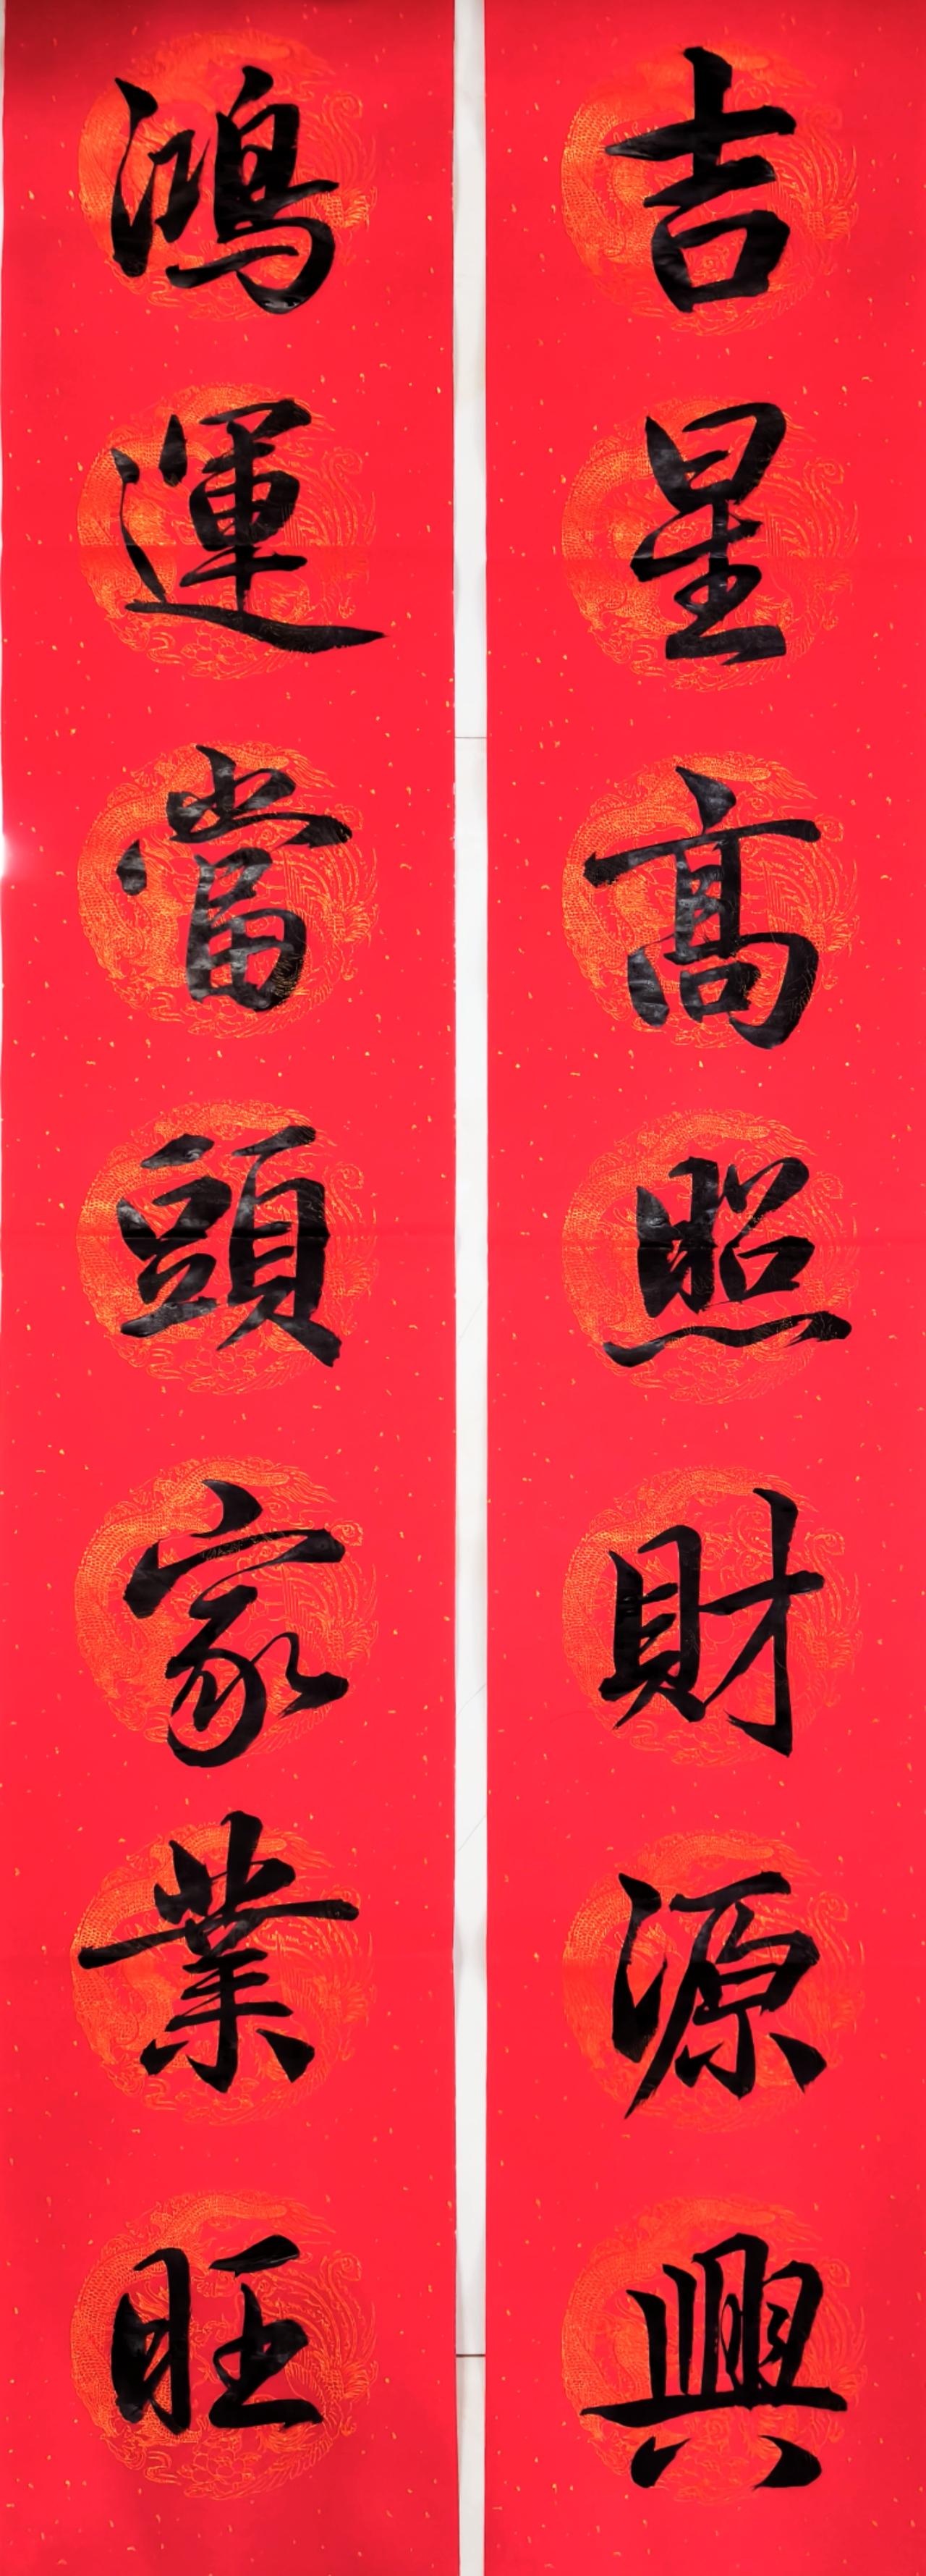 吉星髙照財源興
鴻運當頭家業旺